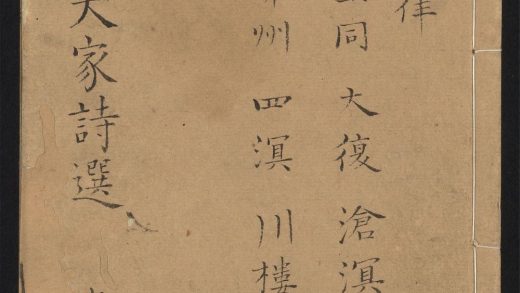 律
同大復滄溟
州四溟川樓
大家詩選